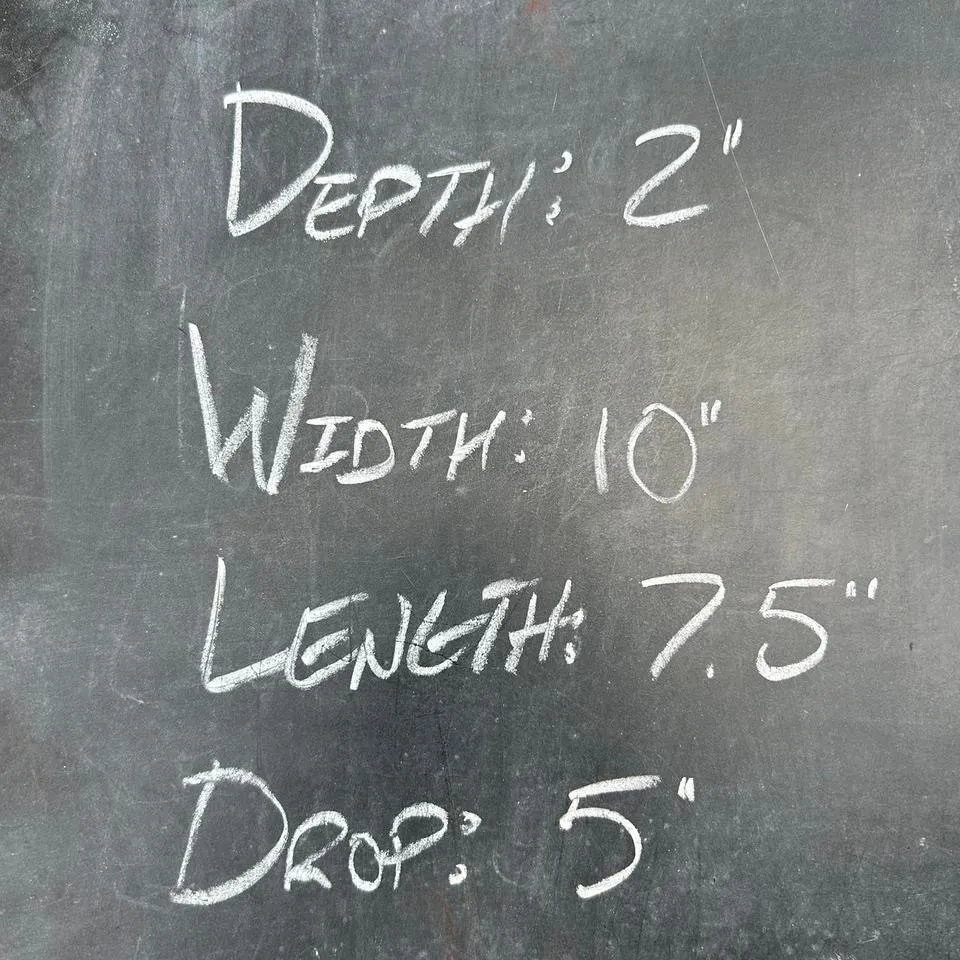 DEPTH: 2"
WIDTH: 10"
LENGTH: 7.5"
DROP: 5"